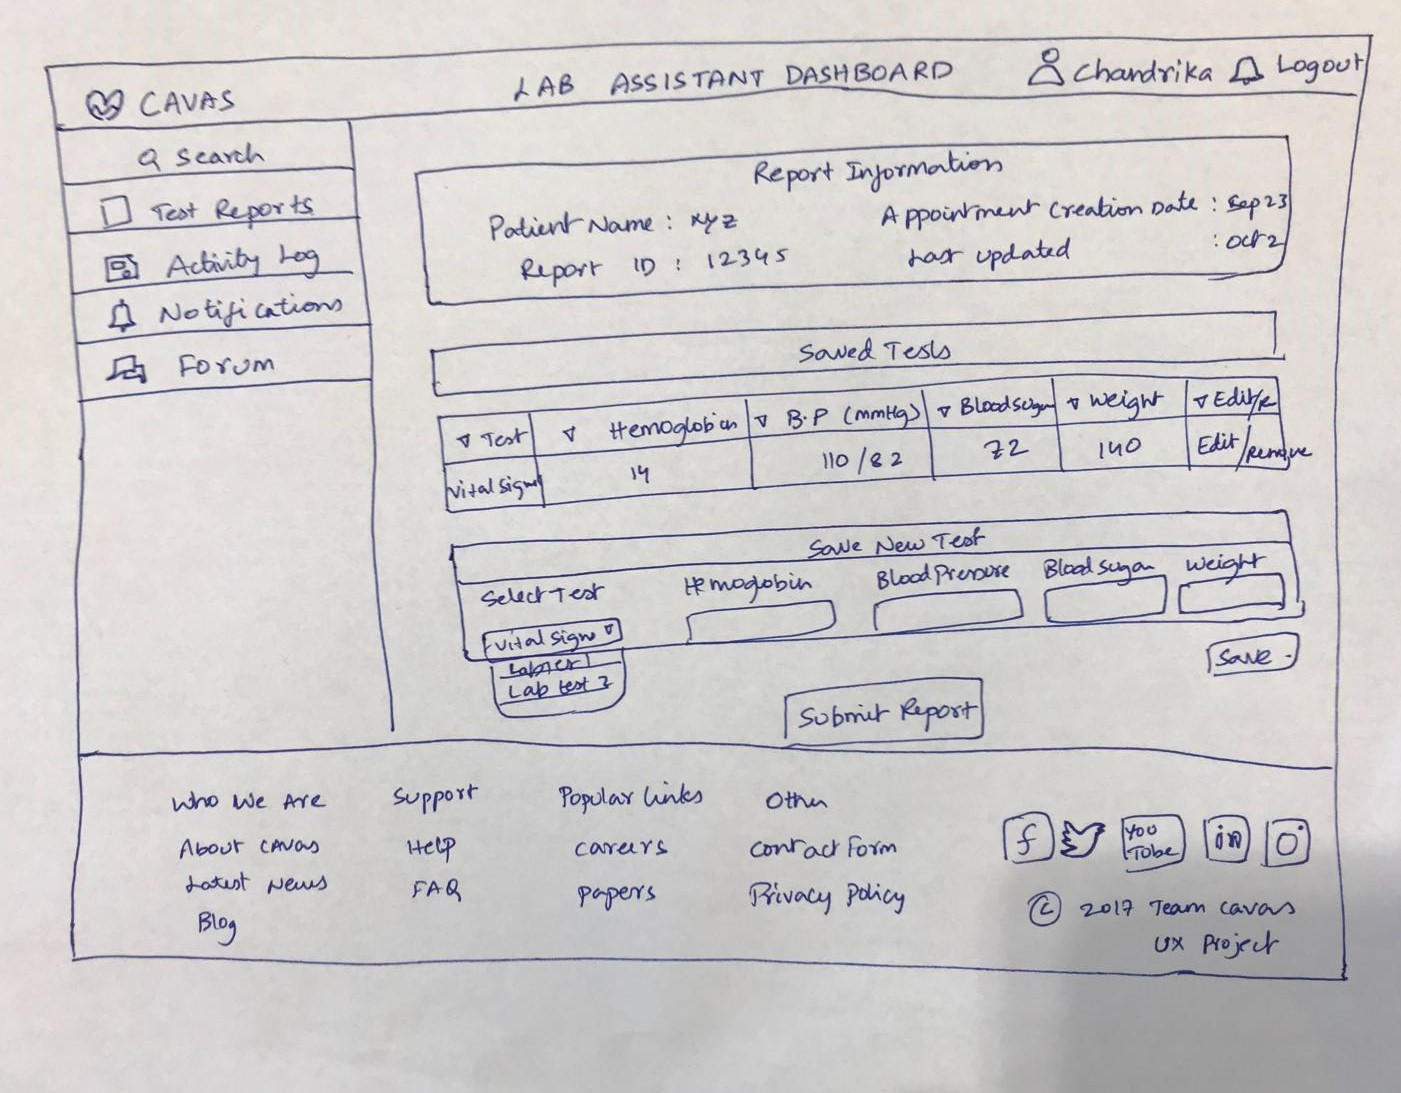 CAVAS
LAB ASSISTANT DASHBOARD
Chandrika
Logout
Search
Test Reports
Activity Log
Notifications
Forum
Report Information
Patient Name : xyz
Appointment Creation Date : Sep 23
Report ID : 12345
Last updated : Oct 2
Saved Tests
Test Hemoglobin B.P (mmHg) Blood sugar Weight Edit/R
Vital Signs 14 110/82 72 140 Edit/Remove
Save New Test
Select Test Hemoglobin Blood Pressure Blood sugar Weight
Vital Signs
Lab test 1
Lab test 2
Save
Submit Report
Who We Are Support Popular Links Other
About CAVAS Help careers contact Form
Latest News FAQ papers Privacy Policy
Blog
f
You Tobe
in
© 2017 Team cavas
UX Project